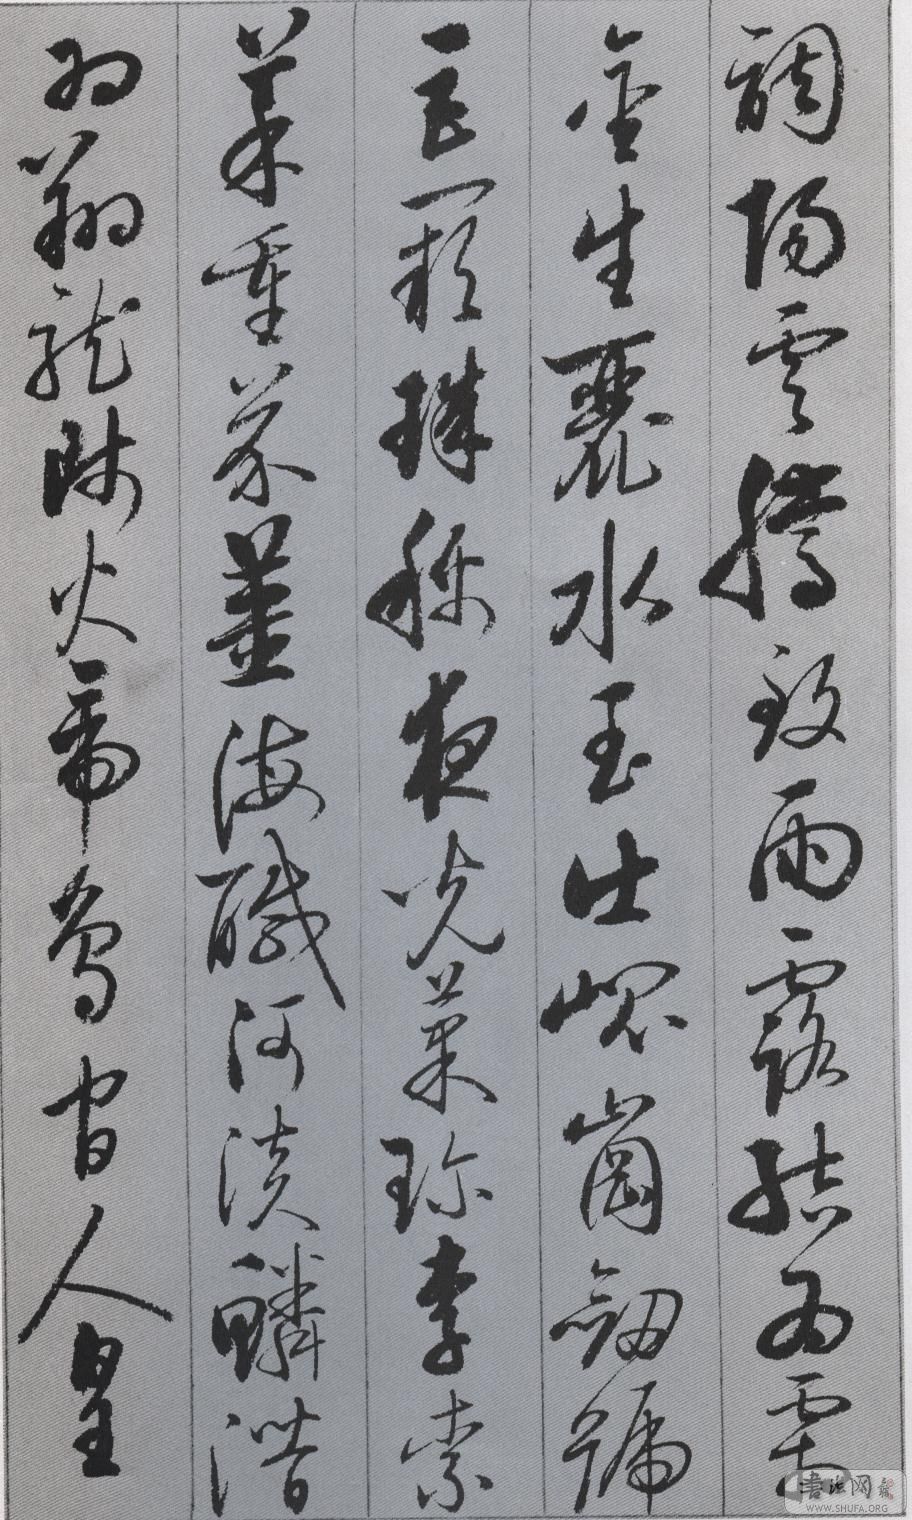 調陽雲騰致雨露結為霜
金生麗水玉出崐崗劒號
巨闕珠稱夜光菓珍李柰
菜重芥薑海醎河淡鱗潛
羽翔龍師火帝鳥官人皇
書法网
WWW.SHUFA.ORG